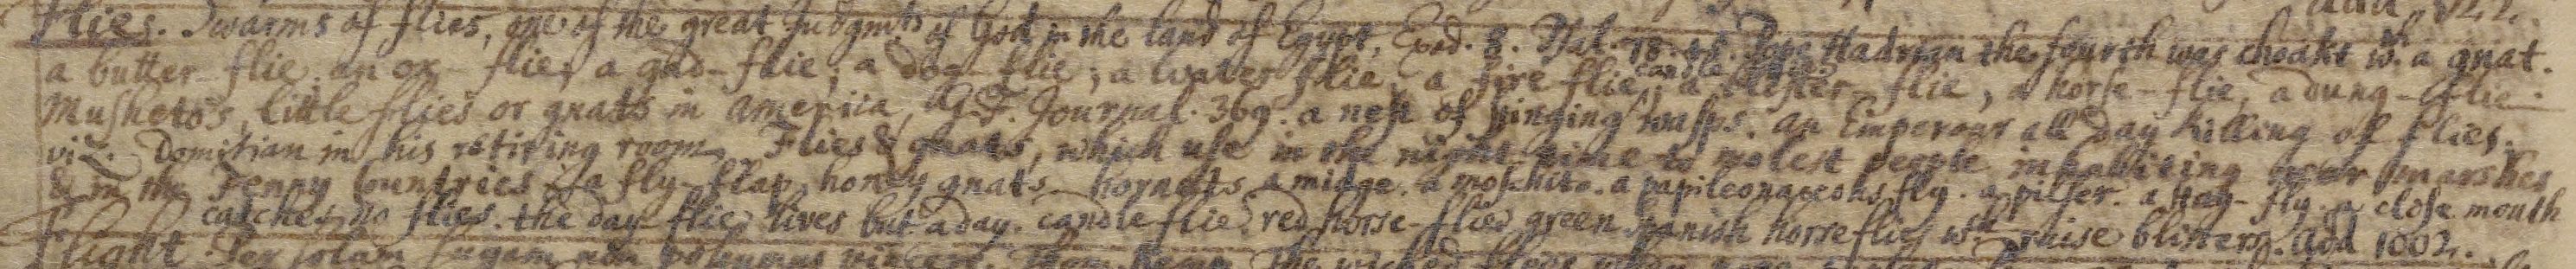 Flies. Swarms of flies, one of the great Judgmts of God in the land of Egypt. Exod. 8. Psal. 78. 45. Pope Hadrian the fourth was choakt wth a gnat.
a butter-flie, an ox-flie, a gad-flie; a dog-flie; a water flie, a fire flie, candle flie; a blister-flie, a horse-flie, a dung-flie.
Musketo's, little flies or gnats in America, G. F. Journal. 369. a nest of stinging wasps. an Emperour all day killing of flies.
viz. Domitian in his retiring room. Flies & gnats, which use in the night time to molest people inhabiting near marshes
& in the Fenny Countries. a fly-flap, honey gnats. hornets. a midge. a moschito. a papileonaceous fly. a piller. a stay-fly. a close mouth
catches no flies. the day-flie lives but a day. candle flie. red horse-flies green spanish horse flies wch raise blisters. add 1002.
Flight. Per solam fugam non possumus vincere. Thom. Kemp. The wicked flees when none